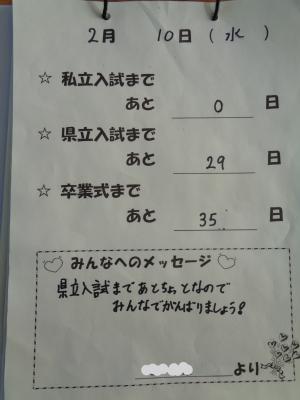 2月 10日(水)
☆ 私立入試まで
あと 0 日
☆ 県立入試まで
あと 29 日
☆ 卒業式まで
あと 35 日
みんなへのメッセージ
県立入試まであとちょっとなので
みんなでがんばりましょう!
より